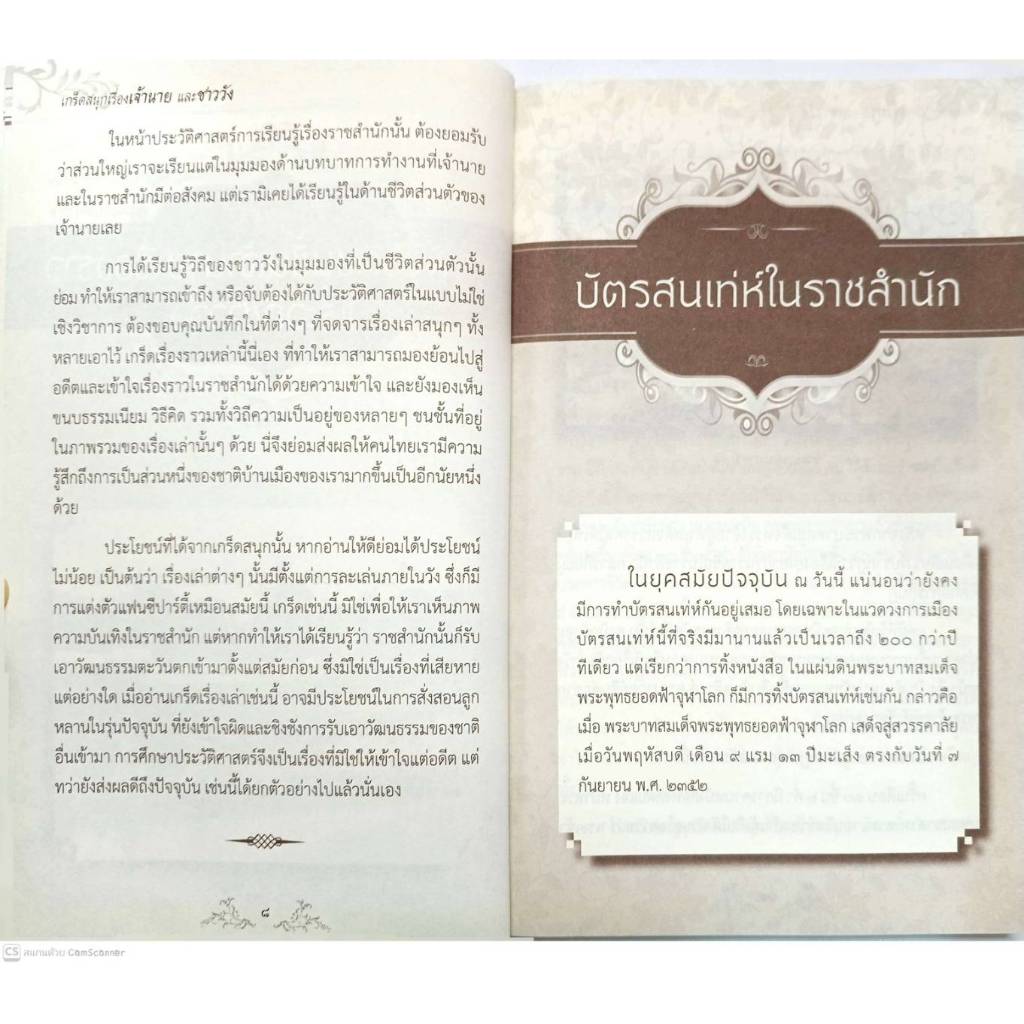 เกร็ดสนุกเรื่องเจ้านาย และชาววัง
ในหน้าประวัติศาสตร์การเรียนรู้เรื่องราชสำนักนั้น ต้องยอมรับ
ว่าส่วนใหญ่เราจะเรียนแต่ในมุมมองด้านบทบาทการทำงานที่เจ้านาย
และในราชสำนักมีต่อสังคม แต่เรามิเคยได้เรียนรู้ในด้านชีวิตส่วนตัวของ
เจ้านายเลย
การได้เรียนรู้วิถีของชาววังในมุมมองที่เป็นชีวิตส่วนตัวนั้น
ย่อม ทำให้เราสามารถเข้าถึง หรือจับต้องได้กับประวัติศาสตร์ในแบบไม่ใช่
เชิงวิชาการ ต้องขอบคุณบันทึกในที่ต่างๆ ที่จดจารเรื่องเล่าสนุกๆ ทั้ง
หลายเอาไว้ เกร็ดเรื่องราวเหล่านี้นี่เอง ที่ทำให้เราสามารถมองย้อนไปสู่
อดีตและเข้าใจเรื่องราวในราชสำนักได้ด้วยความเข้าใจ และยังมองเห็น
ขนบธรรมเนียม วิธีคิด รวมทั้งวิถีความเป็นอยู่ของหลายๆ ชนชั้นที่อยู่
ในภาพรวมของเรื่องเล่านั้นๆ ด้วย นี่จึงย่อมส่งผลให้คนไทยเรามีความ
รู้สึกถึงการเป็นส่วนหนึ่งของชาติบ้านเมืองของเรามากขึ้นเป็นอีกนัยหนึ่ง
ด้วย
ประโยชน์ที่ได้จากเกร็ดสนุกนั้น หากอ่านให้ดีย่อมได้ประโยชน์
ไม่น้อย เป็นต้นว่า เรื่องเล่าต่างๆ นั้นมีตั้งแต่การละเล่นภายในวัง ซึ่งก็มี
การแต่งตัวแฟนซีปาร์ตี้เหมือนสมัยนี้ เกร็ดเช่นนี้ มิใช่เพื่อให้เราเห็นภาพ
ความบันเทิงในราชสำนัก แต่หากทำให้เราได้เรียนรู้ว่า ราชสำนักนั้นก็รับ
เอาวัฒนธรรมตะวันตกเข้ามาตั้งแต่สมัยก่อน ซึ่งมิใช่เป็นเรื่องที่เสียหาย
แต่อย่างใด เมื่ออ่านเกร็ดเรื่องเล่าเช่นนี้ อาจมีประโยชน์ในการสั่งสอนลูก
หลานในรุ่นปัจจุบัน ที่ยังเข้าใจผิดและชิงชังการรับเอาวัฒนธรรมของชาติ
อื่นเข้ามา การศึกษาประวัติศาสตร์จึงเป็นเรื่องที่มิใช่ให้เข้าใจแต่อดีต แต่
ทว่ายังส่งผลดีถึงปัจจุบัน เช่นนี้ได้ยกตัวอย่างไปแล้วนั่นเอง
๘
บัตรสนเท่ห์ในราชสำนัก
ในยุคสมัยปัจจุบัน ณ วันนี้ แน่นอนว่ายังคง
มีการทำบัตรสนเท่ห์กันอยู่เสมอ โดยเฉพาะในแวดวงการเมือง
บัตรสนเท่ห์นี้ที่จริงมีมานานแล้วเป็นเวลาถึง ๒๐๐ กว่าปี
ทีเดียว แต่เรียกว่าการทิ้งหนังสือ ในแผ่นดินพระบาทสมเด็จ
พระพุทธยอดฟ้าจุฬาโลก ก็มีการทิ้งบัตรสนเท่ห์เช่นกัน กล่าวคือ
เมื่อ พระบาทสมเด็จพระพุทธยอดฟ้าจุฬาโลก เสด็จสู่สวรรคาลัย
เมื่อวันพฤหัสบดี เดือน ๙ แรม ๑๓ ปีมะเส็ง ตรงกับวันที่ ๗
กันยายน พ.ศ. ๒๓๕๒
CS สแกนด้วย CamScanner